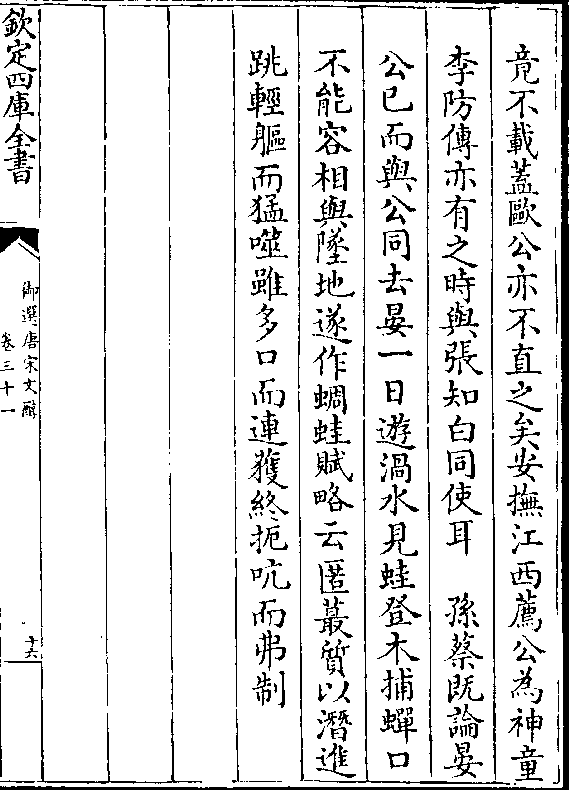 竟不載蓋歐公亦不直之矣安撫江西薦公為神童
李防傳亦有之時與張知白同使耳　孫蔡既論晏
公已而與公同去晏一日遊渦水見蛙登木捕蟬口
不能容相與墜地遂作蜩蛙賦略云匿蕞質以潛進
跳輕軀而猛噬雖多口而連獲終扼吭而弗制
欽定四庫全書
御選唐宋文醇
卷三十一
十六